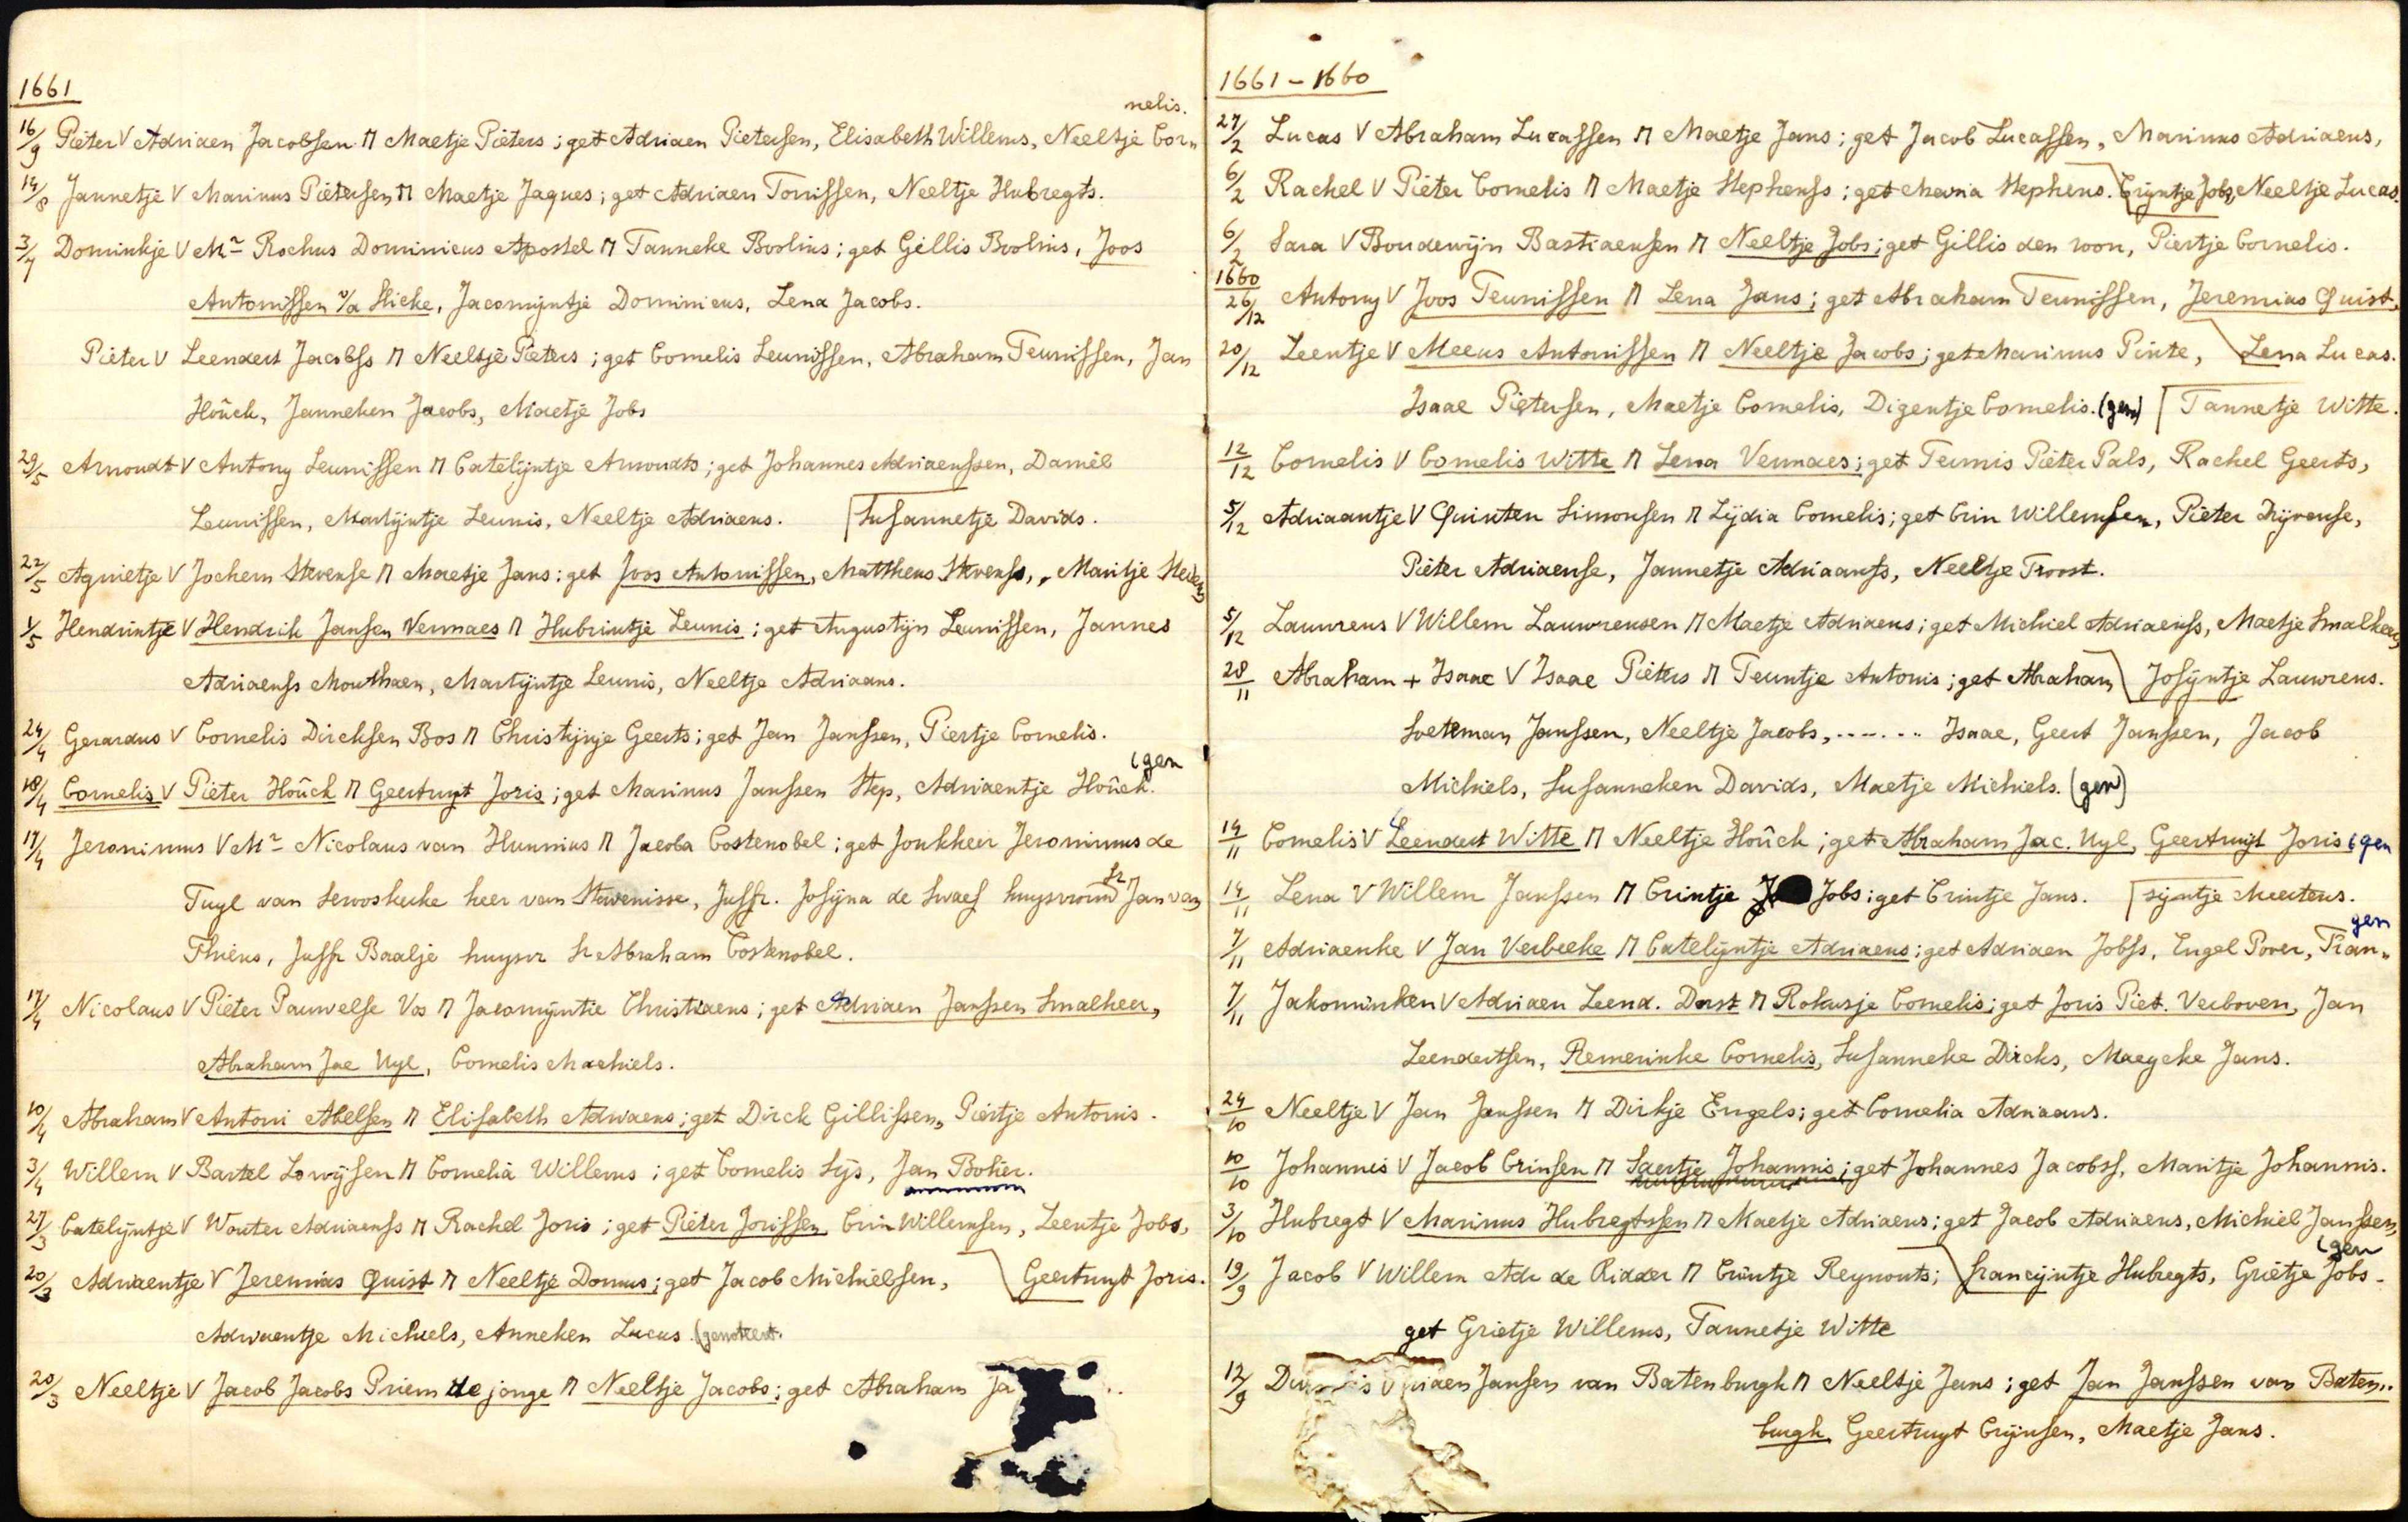 1661
nelis.
16/9 Pieter V Adriaen Jacobssen M Maetje Pieters; get Adriaen Pietersen, Elisabeth Willems, Neeltje Cor„
14/8 Jannetje V Marinus Pietersen M Maetje Jaques; get Adriaen Tonissen, Neeltje Hubregts.
3/7 Dominkje V Mr Rochus Dominicus Apostel M Tanneke Boolins; get Gillis Boolins, Joos
Antonissen v/a Hicke, Jacomijntje Dominicus, Lena Jacobs.
Pieter V Leendert Jacobss M Neeltje Pieters; get Cornelis Leunissen, Abraham Teunissen, Jan
Hoûck, Janneken Jacobs, Maetje Jobs
29/5 Arnoudt V Antony Leunissen M Catelijntje Arnoudts; get Johannes Adriaenssen, Daniël
Leunissen, Martijntje Leunis, Neeltje Adriaens. Susannetje Davids.
22/5 Agnietje V Jochem Stevense M Maetje Jans: get Joos Antonissen, Mattheus Stevenss, „ Maritje Stevens
1/5 Hendrintje V Hendrik Jansen Vermaes M Hubrintje Leunis; get Augustijn Leunissen, Jannes
Adriaenss Mouthaen, Martijntje Leunis, Neeltje Adriaans.
24/4 Gerardus V Cornelis Dircksen Bos M Christijnje Geerts; get Jan Janssen, Piertje Cornelis.
(gen
18/4 Cornelis V Pieter Hoûck M Geertruyt Joris; get Marinus Janssen Step, Adriaentje Hoûck.
17/4 Jeronimus V Mr Nicolaus van Hunnius M Jacoba Costenobel; get Jonkheer Jeronimus de
Tuyl van Serooskerke heer van Stavenisse, Juffr. Josijna de Swaef huysvrouw Sr Jan van
Thiens, Juffr Baalje huysvr Sr Abraham Costenobel.
17/4 Nicolaus V Pieter Pauwelse Vos M Jacomijntie Christiaens; get Adriaen Janssen Smalheer,
Abraham Jac Uyl, Cornelis Machiels.
10/4 Abraham V Antoni Abelsen M Elisabeth Adriaens; get Dirck Gillissen, Piertje Antonis.
3/4 Willem V Bartel Lowijsen M Cornelia Willems; get Cornelis Sijs, Jan Bokier.
27/3 Catelijntje V Wouter Adriaenss M Rachel Joris; get Pieter Jorissen, Crin Willemsen, Leentje Jobs,
20/3 Adriaentje V Jeremias Quist M Neeltje Domus; get Jacob Michielsen, Geertruyt Joris.
Adriaentje Michiels, Anneken Lucus.
20/3 Neeltje V Jacob Jacobs Priem de jonge M Neeltje Jacobs; get Abraham Ja
1661 - 1660
27/2 Lucas V Abraham Lucassen M Maetje Jans; get Jacob Lucassen, Marinus Adriaens,
6/2 Rachel V Pieter Cornelis M Maetje Stephenss; get Maria Stephens. Crijntje Jobs, Neeltje Lucas.
6/2 Sara V Boudewijn Bastiaensen M Neeltje Jobs; get Gillis den roon, Piertje Cornelis.
1660
26/12 Antony V Joos Teunissen M Lena Jans; get Abraham Teunissen, Jeremias Quist,
20/12 Leentje V Meeus Antonissen M Neeltje Jacobs; get Marinus Pinte, Lena Lucas.
Isaac Pietersen, Maetje Cornelis, Digentje Cornelis. (gen) Tannetje Witte.
12/12 Cornelis V Cornelis Witte M Lena Vermaes; get Teunis Pieter Pals, Rachel Geerts,
5/12 Adriaantje V Quinten Simonsen M Lydia Cornelis; get Crin Willemsen, Pieter Drijvense,
Pieter Adriaense, Jannetje Adriaanss, Neeltje Troost.
5/12 Lauwrens V Willem Lauwrensen M Maetje Adriaens; get Michiel Adriaenss, Maetje Smalheer,
28/11 Abraham + Isaac V Isaac Pieters M Teuntje Antonis; get Abraham Josijntje Lauwrens.
Soeteman Janssen, Neeltje Jacobs, ....... Isaac, Geert Janssen, Jacob
Michiels, Susanneken Davids, Maetje Michiels. (gen)
14/11 Cornelis V Leendert Witte M Neeltje Hoûck; get Abraham Jac. Uyl, Geertruijt Joris (gen
14/11 Lena V Willem Janssen M Crintje Jobs; get Crintje Jans. sijntje Meertens.
gen
7/11 Adriaenke V Jan Verbeeke M Catelijntje Adriaens; get Adriaen Jobss, Engel Pover, Fran„
7/11 Jakominken V Adriaen Leend. Dorst M Rokusje Cornelis; get Joris Piet. Verboven, Jan
Leendertsen, Remerinke Cornelis, Susanneke Dircks, Maeycke Jans.
24/10 Neeltje V Jan Janssen M Dirkje Engels; get Cornelia Adriaans.
10/10 Johannis V Jacob Crinsen M Saertje Johannis; get Johannes Jacobss, Maritje Johannis.
3/10 Hubregt V Marinus Hubregtssen M Maetje Adriaens; get Jacob Adriaens, Michiel Janssen,
(gen
19/9 Jacob V Willem Adr de Ridder M Crintje Reynouts; francijntje Hubregts, Grietje Jobs.
get Grietje Willems, Tannetje Witte
12/9 Jansen van Batenburgh M Neeltje Jans; get Jan Janssen van Baten„
burgh, Geertruyt Crijnsen, Maetje Jans.